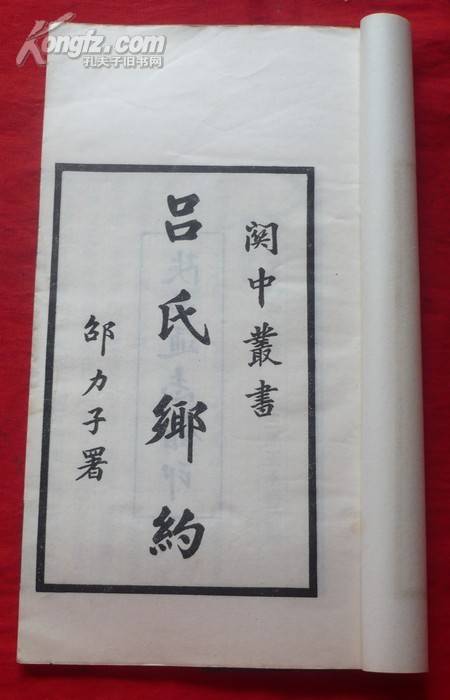 Kongfz.com
孔夫子旧书网
関中叢書
吕氏鄉約
邵力子署